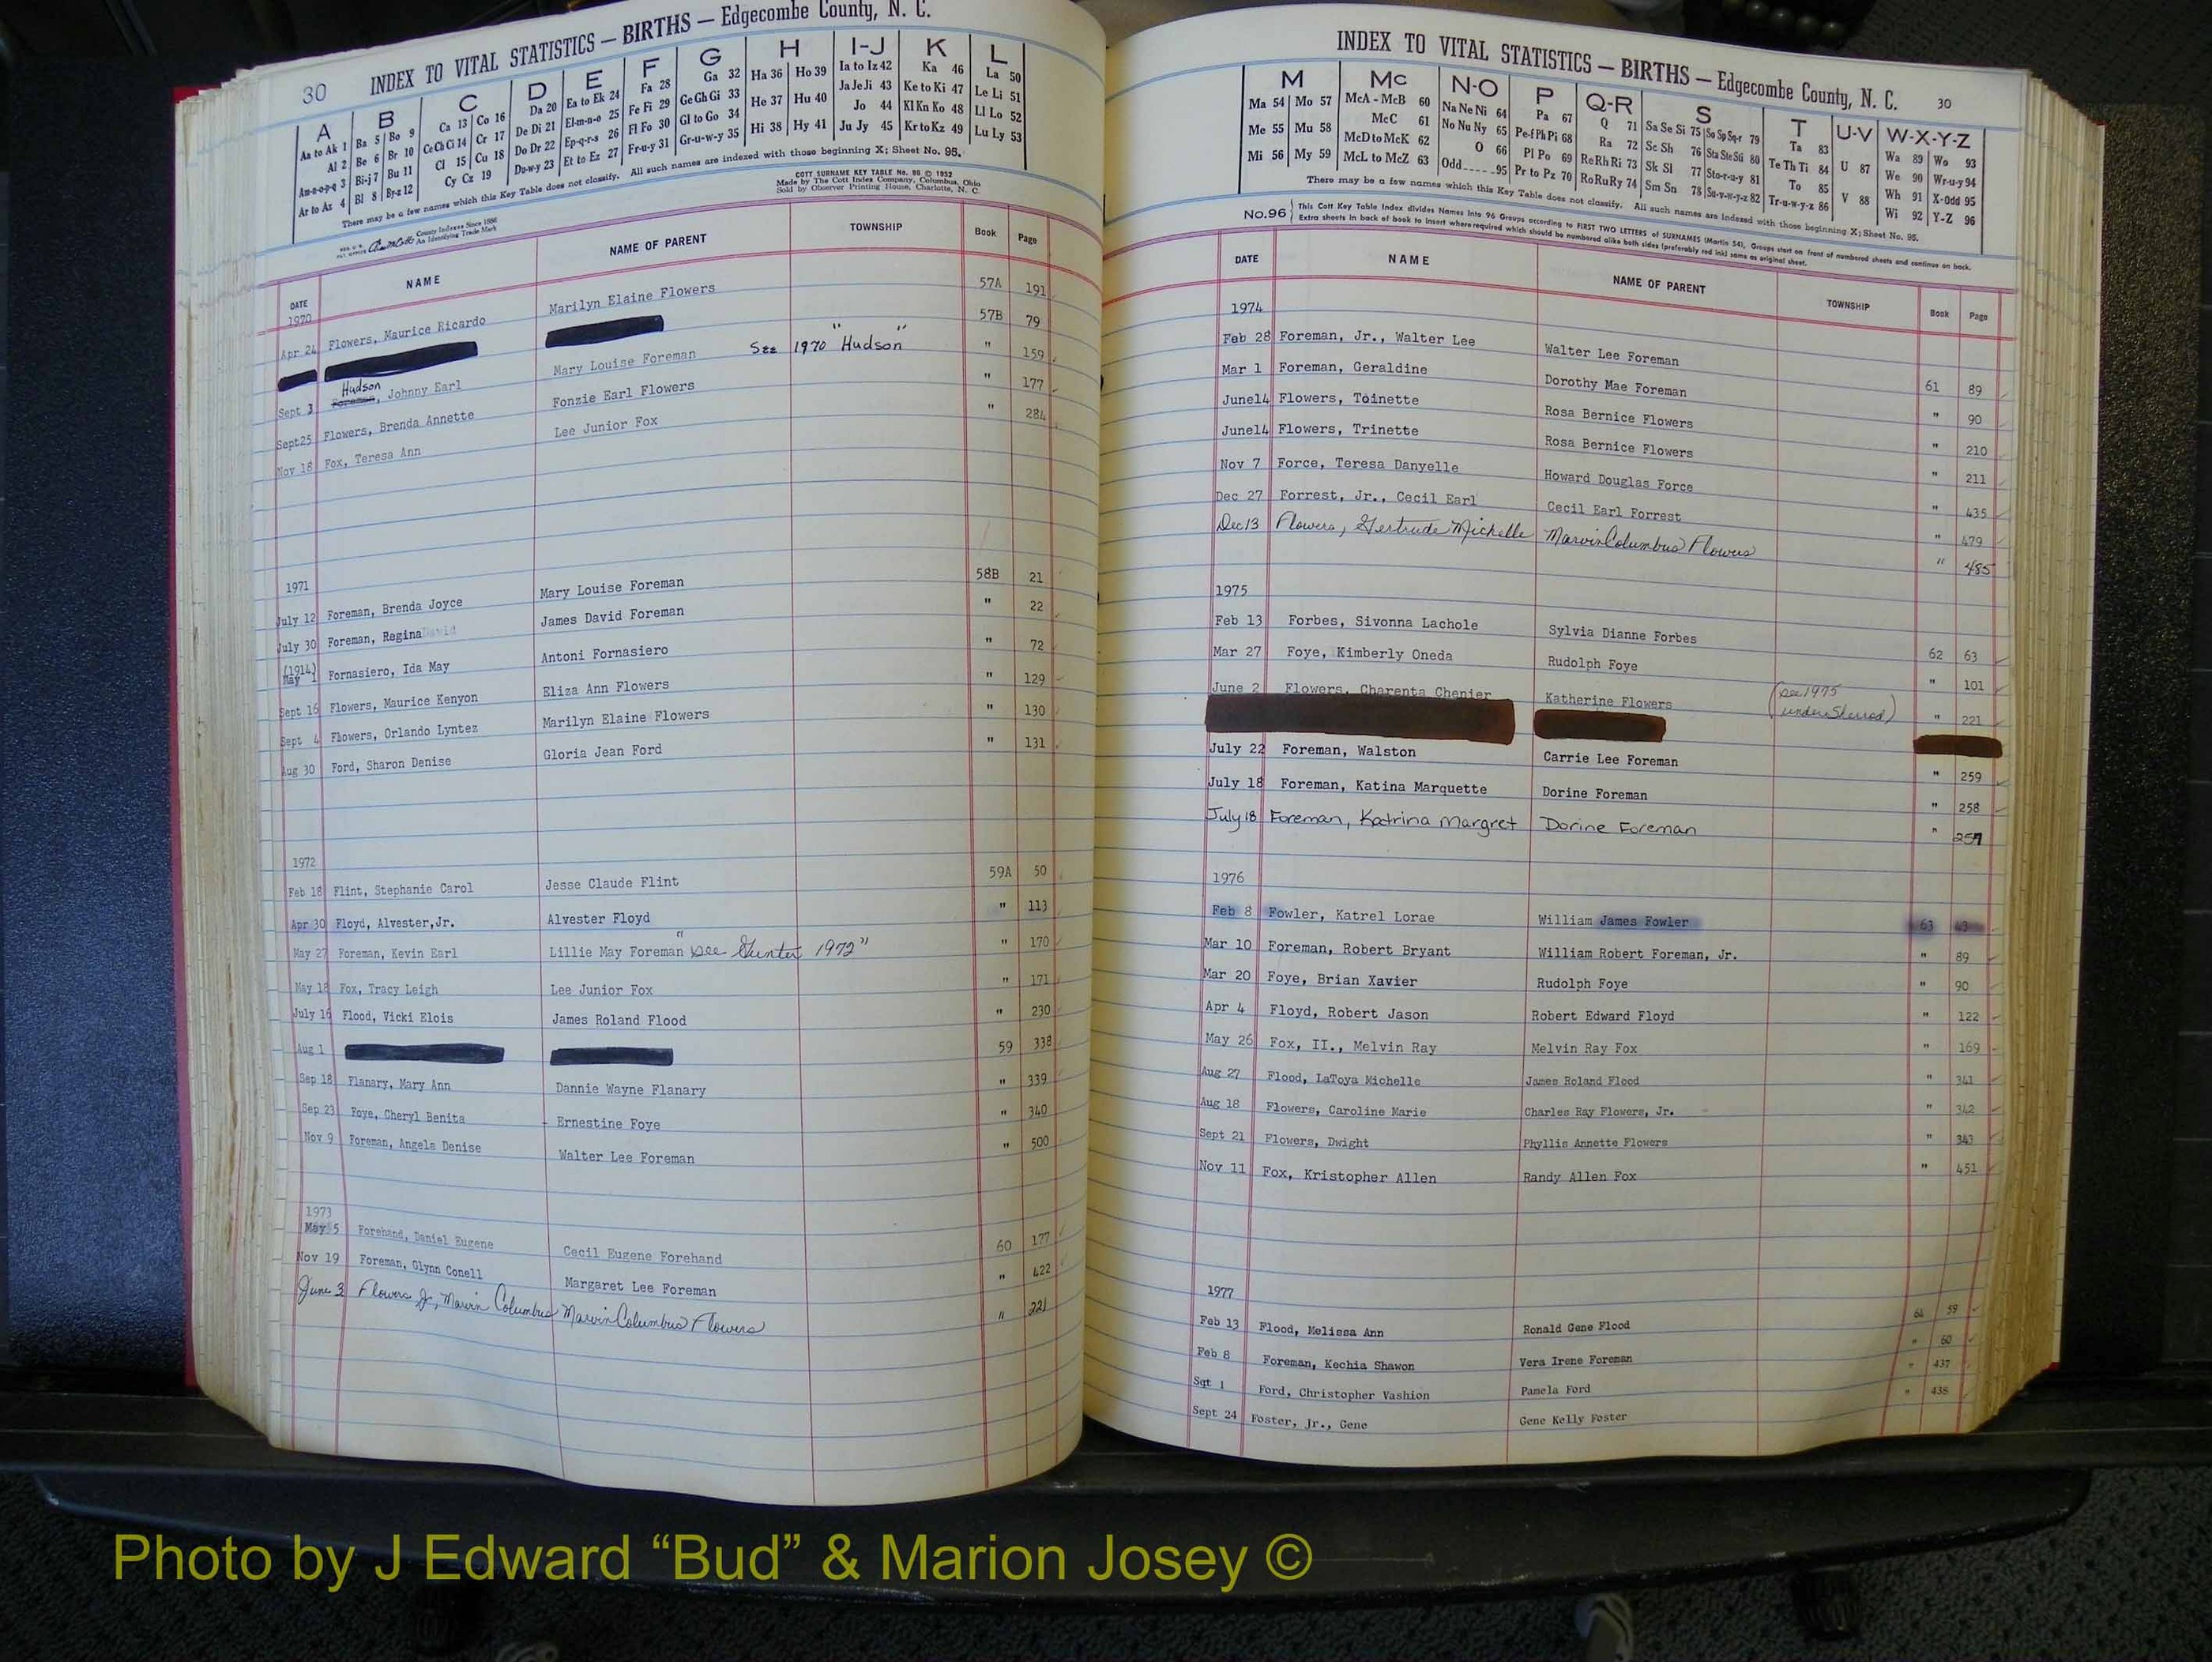 30 INDEX TO VITAL STATISTICS — BIRTHS — Edgecombe County, N. C.
A B C D E F G H I-J K L
Aa to Ak 1 Ba 5 Bo 9 Ca 13 Co 16 Da 20 Ea to Ek 24 Fa 28 Ga 32 Ha 36 Ho 39 Ia to Iz 42 Ka 46 La 50
Al 2 Be 6 Br 10 Ce Ch Ci 14 Cr 17 De Di 21 El-m-n-o 25 Fe Fi 29 Ge Gh Gi 33 He 37 Hu 40 Ja Je Ji 43 Ke to Ki 47 Le Li 51
Am-n-o-p-q 3 Bi-j 7 Bu 11 Cl 15 Cu 18 Do Dr 22 Ep-q-r-s 26 Fl Fo 30 Gl to Go 34 Hi 38 Hy 41 Jo 44 Kl Kn Ko 48 Ll Lo 52
Ar to Az 4 Bl 8 By-z 12 Cy Cz 19 Du-w-y 23 Et to Ez 27 Fr-u-y 31 Gr-u-w-y 35 Ju Jy 45 Kr to Kz 49 Lu Ly 53
There may be a few names which this Key Table does not classify. All such names are indexed with those beginning X; Sheet No. 95.
COTT SURNAME KEY TABLE No. 96 © 1952
Made by The Cott Index Company, Columbus, Ohio
Sold by Observer Printing House, Charlotte, N. C.
County Indexes Since 1888
An Identifying Trade Mark
DATE NAME NAME OF PARENT TOWNSHIP Book Page
1970
Apr 24 Flowers, Maurice Ricardo Marilyn Elaine Flowers 57A 191
57B 79
Sept 3 Hudson Foreman, Johnny Earl Mary Louise Foreman See 1970 "Hudson" " 159
Sept25 Flowers, Brenda Annette Fonzie Earl Flowers " 177
Nov 18 Fox, Teresa Ann Lee Junior Fox " 284
1971
July 12 Foreman, Brenda Joyce Mary Louise Foreman 58B 21
July 30 Foreman, Regina James David Foreman " 22
(1914) May 1 Fornasiero, Ida May Antoni Fornasiero " 72
Sept 16 Flowers, Maurice Kenyon Eliza Ann Flowers " 129
Sept 4 Flowers, Orlando Lyntez Marilyn Elaine Flowers " 130
Aug 30 Ford, Sharon Denise Gloria Jean Ford " 131
1972
Feb 18 Flint, Stephanie Carol Jesse Claude Flint 59A 50
Apr 30 Floyd, Alvester,Jr. Alvester Floyd " 113
May 27 Foreman, Kevin Earl Lillie May Foreman "See Gunter 1972" " 170
May 18 Fox, Tracy Leigh Lee Junior Fox " 171
July 16 Flood, Vicki Elois James Roland Flood " 230
Aug 1 59 338
Sep 18 Flanary, Mary Ann Dannie Wayne Flanary " 339
Sep 23 Foye, Cheryl Benita Ernestine Foye " 340
Nov 9 Foreman, Angela Denise Walter Lee Foreman " 500
1973
May 5 Forehand, Daniel Eugene Cecil Eugene Forehand 60 177
Nov 19 Foreman, Glynn Conell Margaret Lee Foreman " 422
June 3 Flowers Jr, Marvin Columbus Marvin Columbus Flowers " 221
INDEX TO VITAL STATISTICS — BIRTHS — Edgecombe County, N. C. 30
M Mc N-O P Q-R S T U-V W-X-Y-Z
Ma 54 Mo 57 McA - McB 60 Na Ne Ni 64 Pa 67 Q 71 Sa Se Si 75 So Sp Sq-r 79 Ta 83 Wa 89 Wo 93
Me 55 Mu 58 McC 61 No Nu Ny 65 Pe-f Ph Pi 68 Ra 72 Sc Sh 76 Sta Ste Sti 80 Te Th Ti 84 U 87 We 90 Wr-u-y 94
Mi 56 My 59 McD to McK 62 O 66 Pl Po 69 Re Rh Ri 73 Sk Sl 77 Sto-r-u-y 81 To 85 V 88 Wh 91 X-Odd 95
McL to McZ 63 Odd 95 Pr to Pz 70 Ro Ru Ry 74 Sm Sn 78 Su-v-w-y-z 82 Tr-u-w-y-z 86 Wi 92 Y-Z 96
There may be a few names which this Key Table does not classify. All such names are indexed with those beginning X; Sheet No. 95.
No.96 This Cott Key Table Index divides Names into 96 Groups according to FIRST TWO LETTERS of SURNAMES (Martin 54). Groups start on front of numbered sheets and continue on back.
Extra sheets in back of book to insert where required which should be numbered alike both sides (preferably red ink) same as original sheet.
DATE NAME NAME OF PARENT TOWNSHIP Book Page
1974
Feb 28 Foreman, Jr., Walter Lee Walter Lee Foreman 61 89
Mar 1 Foreman, Geraldine Dorothy Mae Foreman " 90
June14 Flowers, Toinette Rosa Bernice Flowers " 210
June14 Flowers, Trinette Rosa Bernice Flowers " 211
Nov 7 Force, Teresa Danyelle Howard Douglas Force " 435
Dec 27 Forrest, Jr., Cecil Earl Cecil Earl Forrest " 479
Dec 13 Flowers, Gertrude Michelle Marvin Columbus Flowers " 485
1975
Feb 13 Forbes, Sivonna Lachole Sylvia Dianne Forbes 62 63
Mar 27 Foye, Kimberly Oneda Rudolph Foye " 101
June 2 Flowers, Charenta Chenier Katherine Flowers (See 1975 under Sherrod) " 221
July 22 Foreman, Walston Carrie Lee Foreman " 259
July 18 Foreman, Katina Marquette Dorine Foreman " 258
July 18 Foreman, Katrina Margret Dorine Foreman " 257
1976
Feb 8 Fowler, Katrel Lorae William James Fowler 63 43
Mar 10 Foreman, Robert Bryant William Robert Foreman, Jr. " 89
Mar 20 Foye, Brian Xavier Rudolph Foye " 90
Apr 4 Floyd, Robert Jason Robert Edward Floyd " 122
May 26 Fox, II., Melvin Ray Melvin Ray Fox " 169
Aug 27 Flood, LaToya Michelle James Roland Flood " 341
Aug 18 Flowers, Caroline Marie Charles Ray Flowers, Jr. " 342
Sept 21 Flowers, Dwight Phyllis Annette Flowers " 343
Nov 11 Fox, Kristopher Allen Randy Allen Fox " 451
1977
Feb 13 Flood, Melissa Ann Ronald Gene Flood 64 59
Feb 8 Foreman, Kechia Shawon Vera Irene Foreman " 60
Sqt 1 Ford, Christopher Vashion Pamela Ford " 437
Sept 24 Foster, Jr., Gene Gene Kelly Foster " 438
Photo by J Edward “Bud” & Marion Josey ©